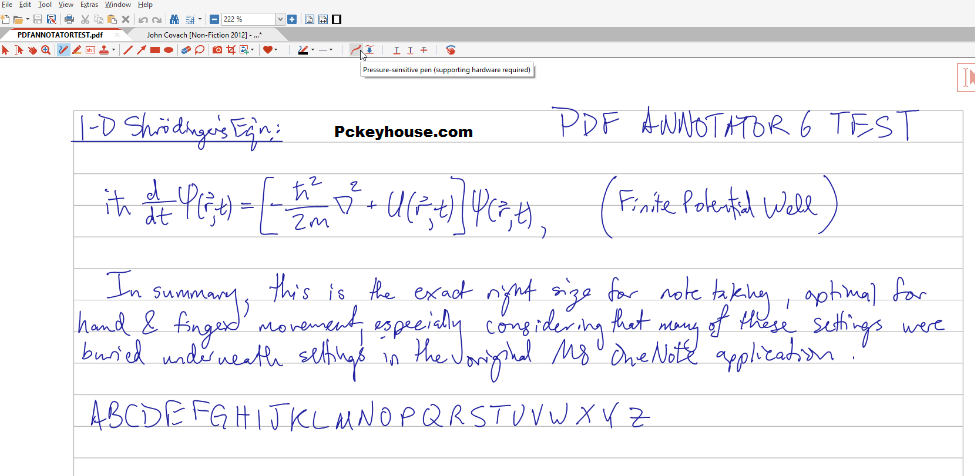 File Edit Tool View Extras Window Help
222 %
PDFANNOTATORTEST.pdf John Covach [Non-Fiction 2012] - ...*
Pressure-sensitive pen (supporting hardware required)
1-D Shrödinger's Eqn.: Pckeyhouse.com PDF ANNOTATOR 6 TEST
iħ d/dt Ψ(r⃗,t) = [-ħ²/2m ∇² + U(r⃗,t)] Ψ(r⃗,t), (Finite Potential Well)
In summary, this is the exact right size for note taking, optimal for
hand & finger movement especially considering that many of these settings were
buried underneath settings in the original MS OneNote application.
ABCDEFGHIJKLMNOPQRSTUVWXYZ